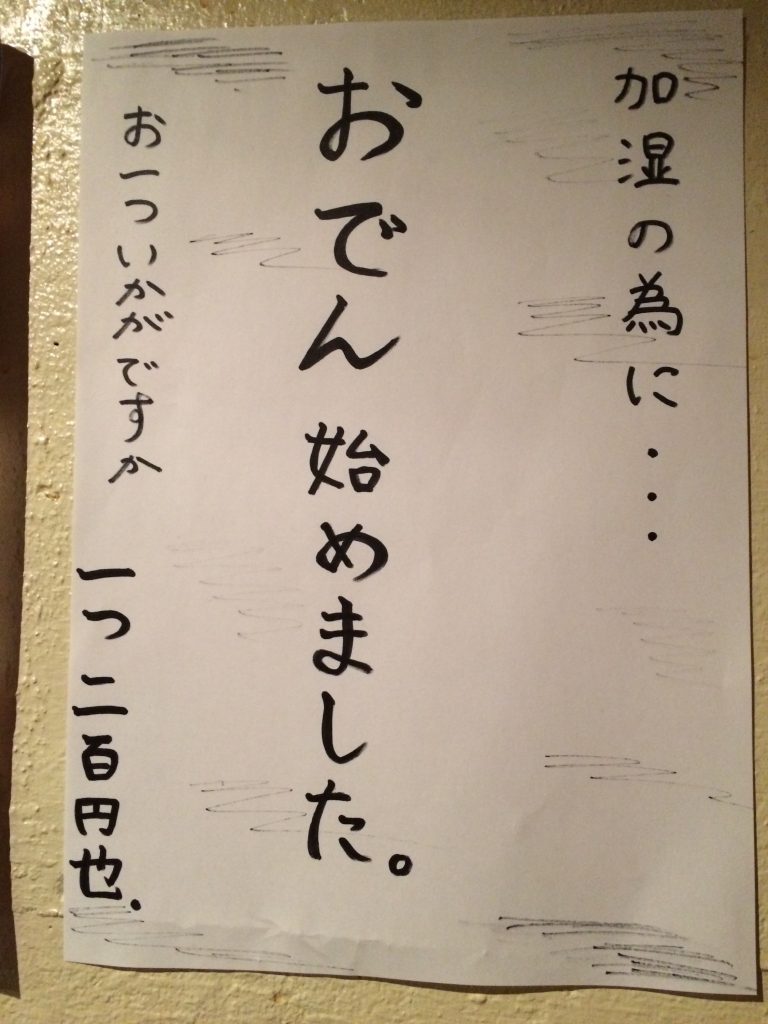 加湿の為に・・・
おでん始めました。
お一ついかがですか
一つ二百円也.